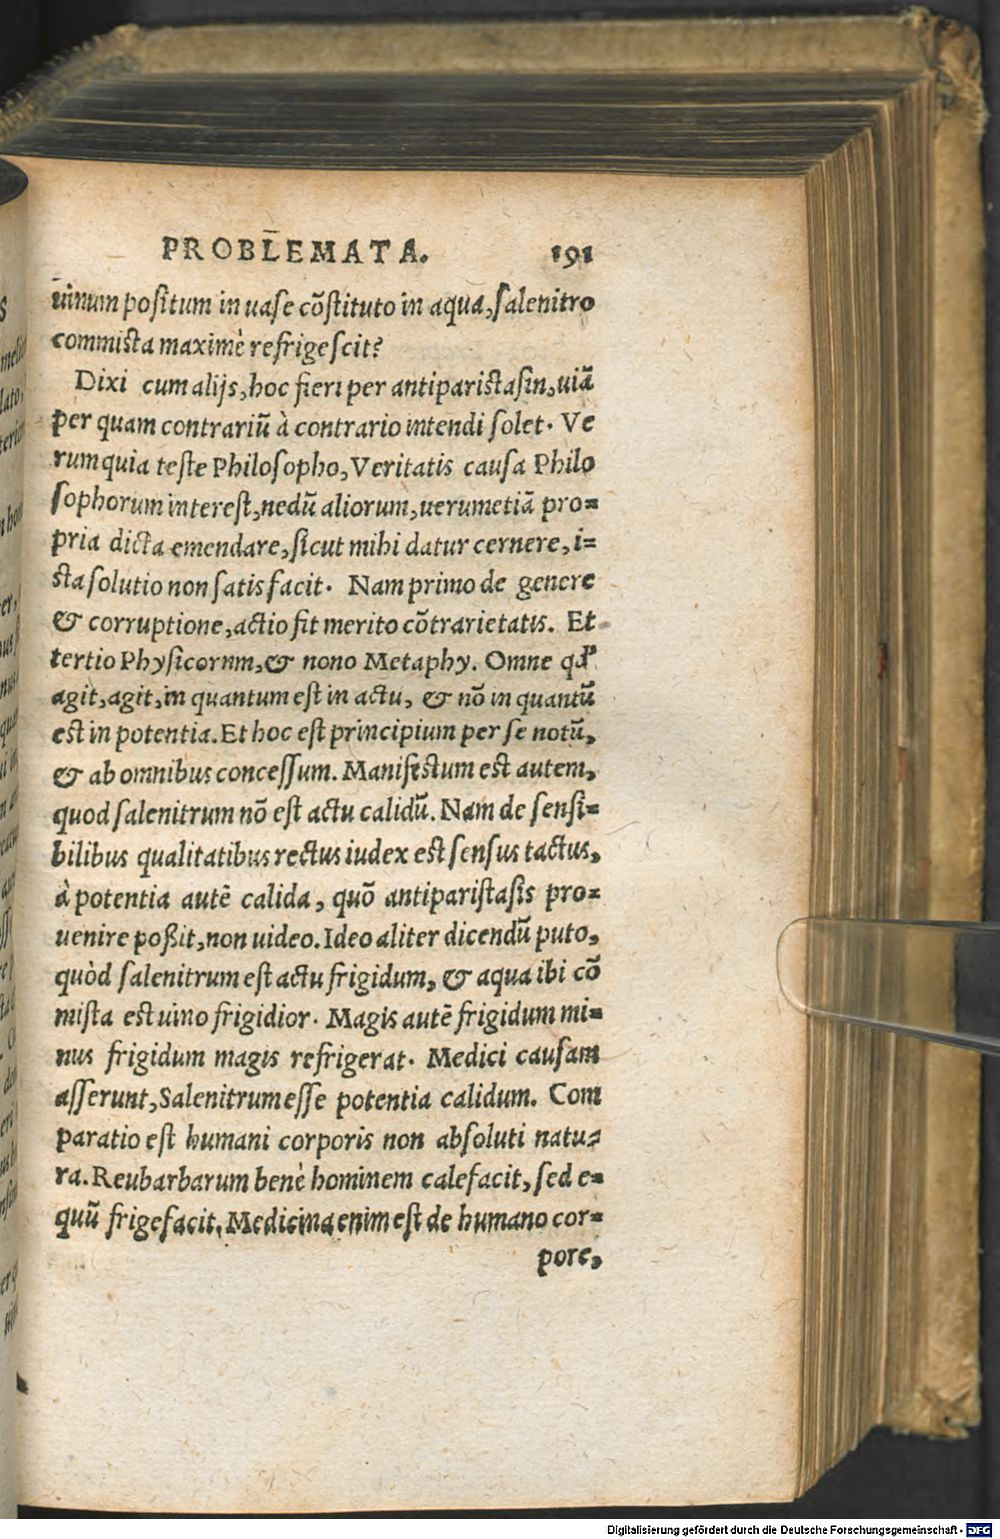 PROBLEMATA. 191
uinum positum in uase cõstituto in aqua, salenitro
commista maximè refrigescit?
Dixi cum alijs, hoc fieri per antiparistasin, uiã
per quam contrariũ à contrario intendi solet. Ve
rum quia teste Philosopho, Veritatis causa Philo
sophorum interest, nedũ aliorum, uerumetiã pro=
pria dicta emendare, sicut mihi datur cernere, i=
sta solutio non satis facit. Nam primo de genere
& corruptione, actio fit merito cõtrarietatis. Et
tertio Physicornm, & nono Metaphy. Omne qđ
agit, agit, in quantum est in actu, & nõ in quantũ
est in potentia. Et hoc est principium per se notũ,
& ab omnibus concessum. Manifestum est autem,
quod salenitrum nõ est actu calidũ. Nam de sensi=
bilibus qualitatibus rectus iudex est sensus tactus,
à potentia autẽ calida, quõ antiparistasis pro=
uenire poßit, non uideo. Ideo aliter dicendũ puto,
quòd salenitrum est actu frigidum, & aqua ibi cõ
mista est uino frigidior. Magis autẽ frigidum mi=
nus frigidum magis refrigerat. Medici causam
asserunt, Salenitrum esse potentia calidum. Com
paratio est humani corporis non absoluti natu=
ra. Reubarbarum benè hominem calefacit, sed e=
quũ frigefacit. Medicina enim est de humano cor=
pore,
Digitalisierung gefördert durch die Deutsche Forschungsgemeinschaft - DFG